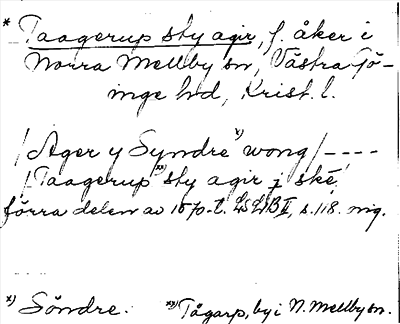 * Taagerup sty agir, f. åker i
Norra Mellby sn, Västra Gö-
inge hd, Krist. l.
/Ager y Syndre x) wong/----
/Taagerup xx) sty agir j ské,
förra delen av 1570-t. LSLB II, s. 118. mg.
x) Söndre. xx) Tågarp, by i N. Mellby sn.